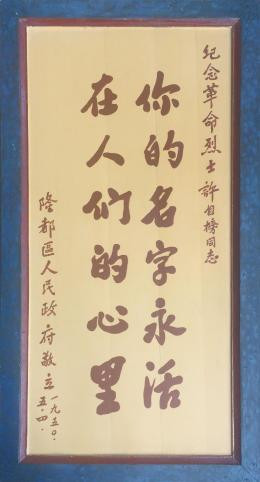 纪念革命烈士許自榜同志
你的名字永活
在人们的心里
隆都區人民政府敬立
一九五〇.五.四.